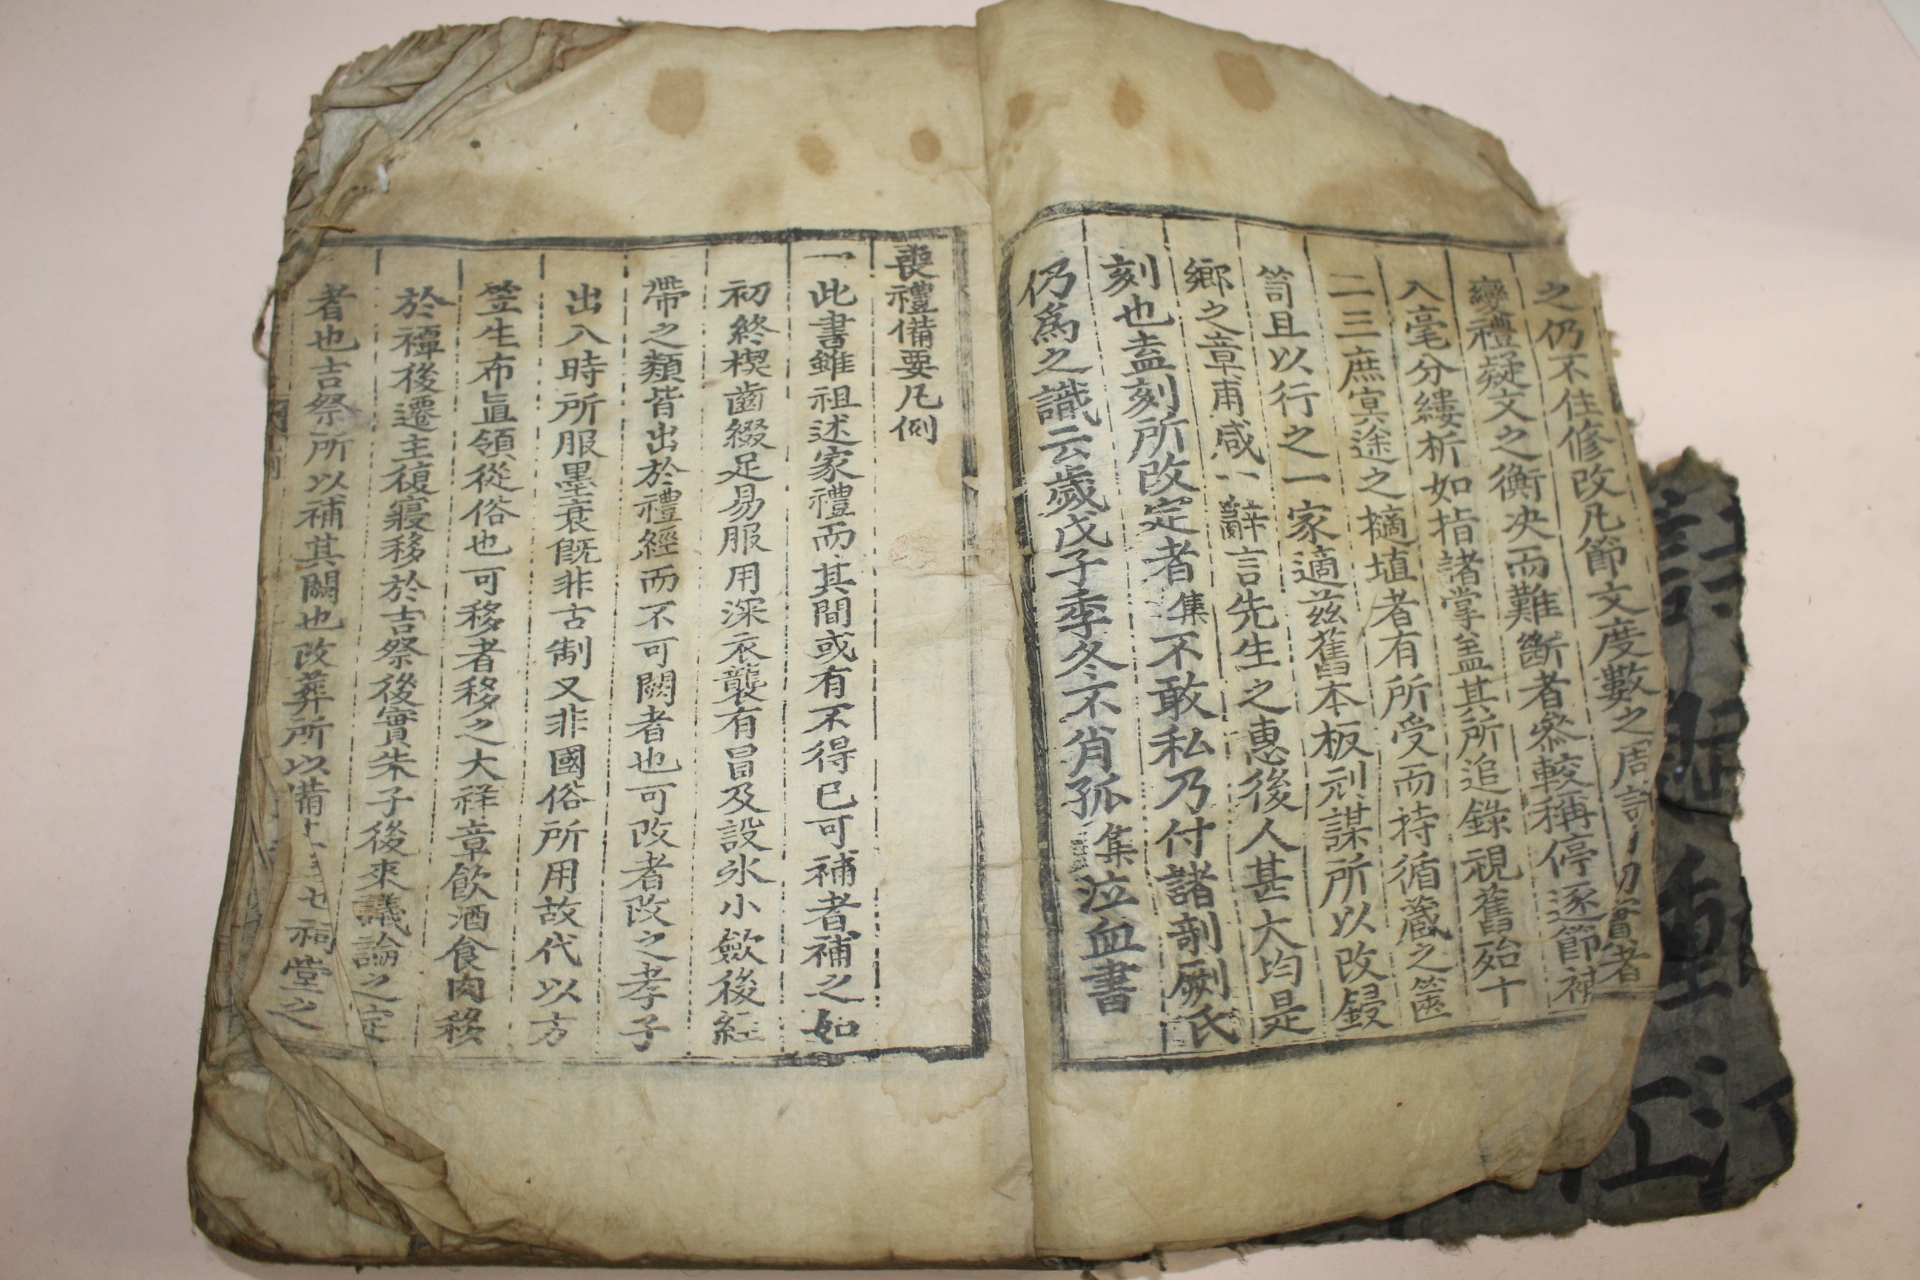 之仍不住修改凡節文度數之周詳
變禮疑文之衡决而難斷者叅較稱停逐節補
入毫分縷析如指諸掌盖其所追錄視舊殆十
二三庶㝠途之擿埴者有所受而持循蔵之篋
笥且以行之一家適茲舊本板刓謀所以改鋟
鄉之章甫咸一辭言先生之惠後人甚大均是
刻也盍刻所改定者集不敢私乃付諸剞劂氏
仍爲之識云歲戊子季冬不肖孤集泣血書
喪禮備要凡例
一此書雖祖述家禮而其間或有不得已可補者補之如
初終楔齒綴足易服用深衣襲有冒及設氷小歛後絰
帶之類皆出於禮經而不可闕者也可改者改之孝子
出入時所服墨衰旣非古制又非國俗所用故代以方
笠生布直領從俗也可移者移之大祥章飮酒食肉移
於禫後遷主復寢移於吉祭後實朱子後來議論之定
者也吉祭所以補其闕也改葬所以備也祠堂之